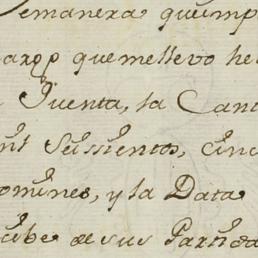 emanera queimp
argo que mellevo he
Quenta, la Cant
Seissientos, cinc
omines, y la Data
cibe de sus Partida